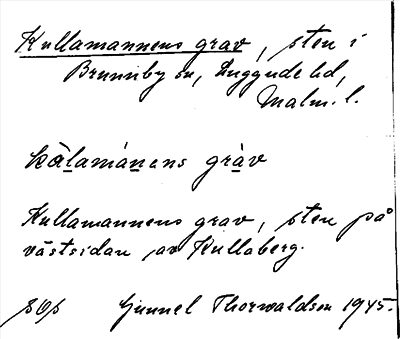 Kullamannens grav, sten i
Brunnby sn, Luggude hd,
Malm. l.
kälamánens gràv
Kullamannens grav, sten på
västsidan av Kullaberg.
Gunnel Thorwaldson 1945.